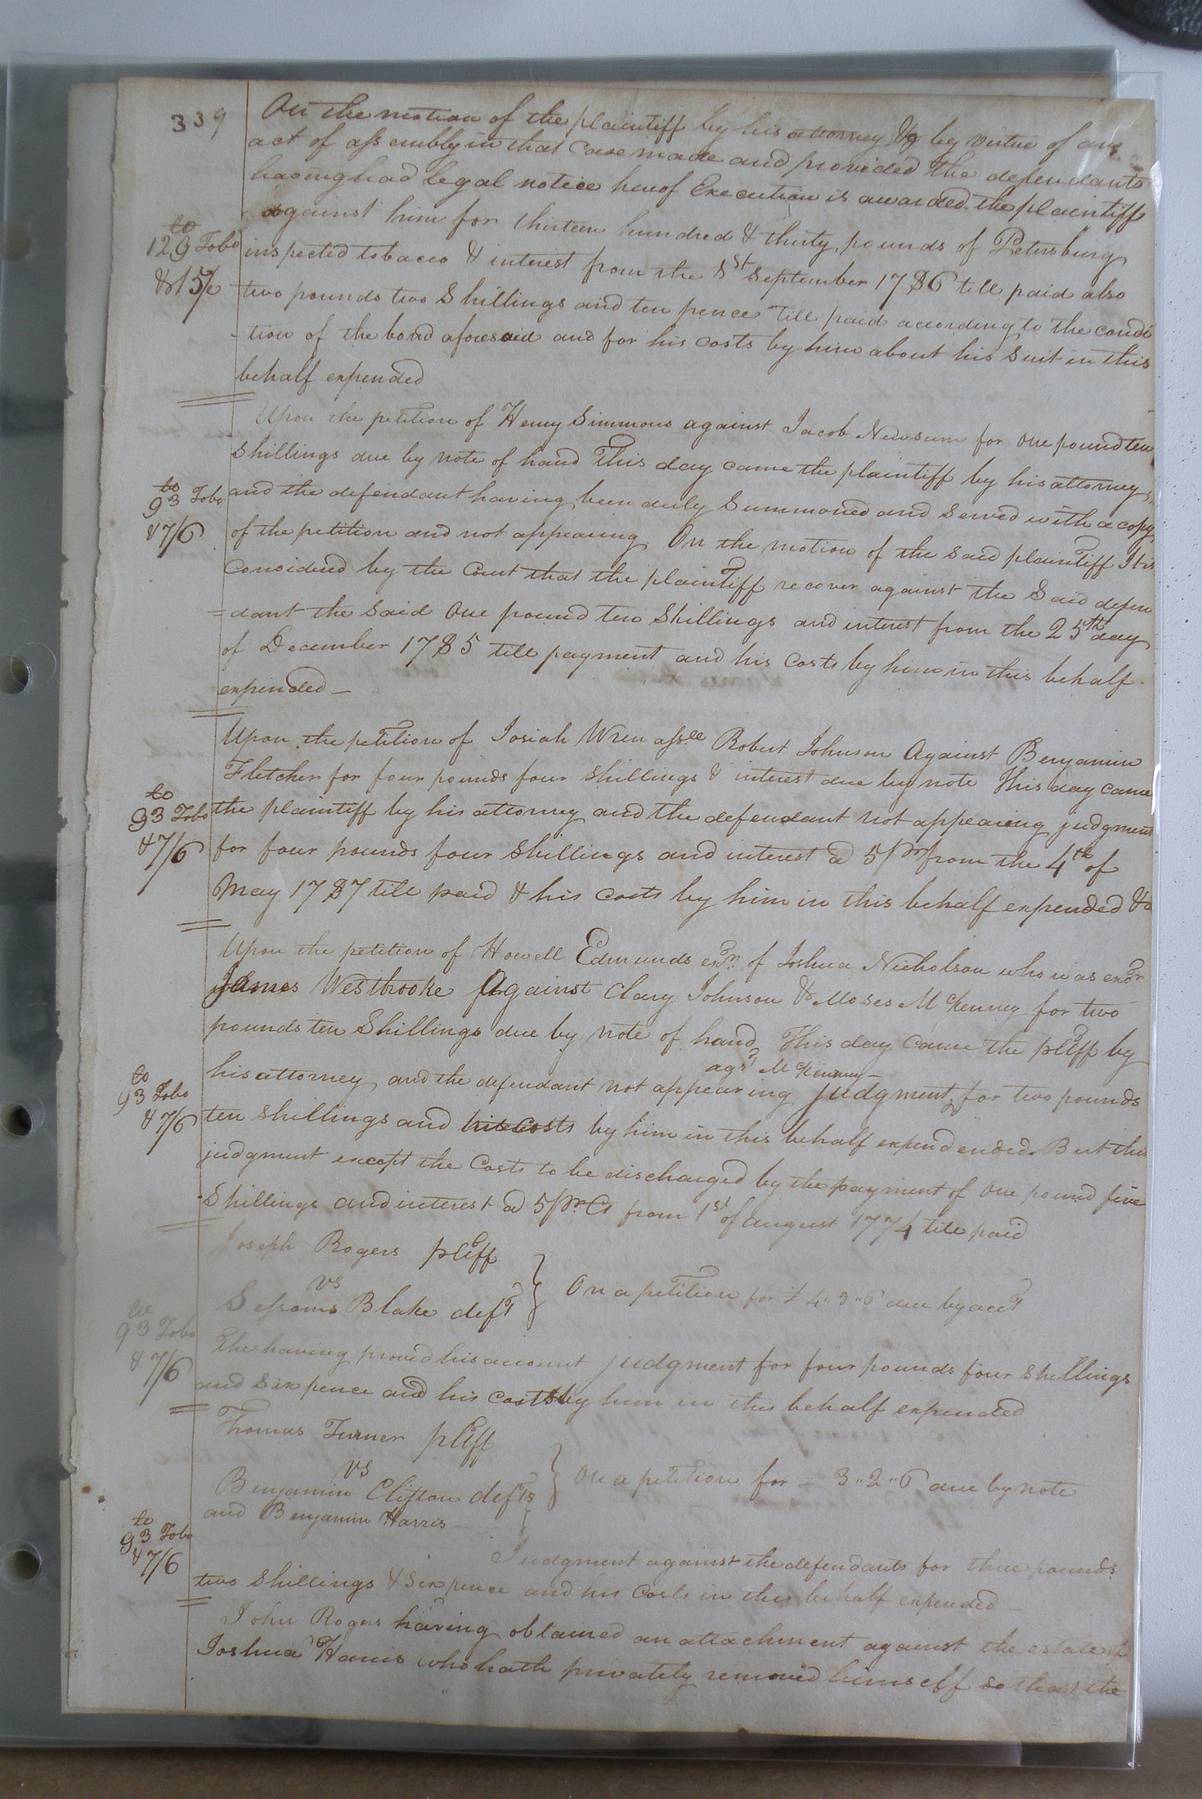 339
On the motion of the plaintiff by his attorney & by virtue of an
act of assembly in that case made and provided the defendants
having had legal notice hereof Execution is awarded the plaintiff
against him for thirteen hundred & thirty pounds of Petersburg
to
129 Tobo
&15/
inspected tobacco & interest from the 1st September 1786 till paid also
two pounds two Shillings and ten pence till paid according to the condi
-tion of the bond aforesaid and for his costs by him about his Suit in this
behalf expended
Upon the petition of Henry Simmons against Jacob Newsum for one pound ten
Shillings due by note of hand This day came the plaintiff by his attorney
to
93 Tobo
&7/6
and the defendant having been duly Summoned and Served with a copy
of the petition and not appearing On the motion of the said plaintiff It is
Considered by the Court that the plaintiff recover against the Said defen
=dant the Said One pound ten Shillings and interest from the 25th day
of December 1785 till payment and his Costs by him in this behalf
expended—
Upon the petition of Josiah Wren assee Robert Johnson Against Benjamin
Fletcher for four pounds four Shillings & interest due by note This day came
to
93 Tobo
&7/6
the plaintiff by his attorney and the defendant not appearing judgment
for four pounds four Shillings and interest @ 5 pr from the 4th of
May 1787 till paid & his costs by him in this behalf expended &c
Upon the petition of Howell Edmunds exr. of Joshua Nicholson who was exor
James Westbrooke Against Clary Johnson & Moses McKenney for two
pounds ten Shillings due by note of hand This day came the pltff by
agst McKenney—
to
93 Tobo
&7/6
his attorney and the defendant not appearing Judgment for two pounds
ten shillings and his costs by him in this behalf expend ended. But this
judgment except the Costs to be discharged by the payment of One pound five
Shillings and interest @ 5 Pr Ct from 1st of august 1774 till paid
Joseph Rogers pltff
vs
Sessoms Blake deft
On a petition for £ 4"3"6 due by acct
to
93 Tobo
&7/6
The having proved his account judgment for four pounds four Shillings
and Six pence and his costs by him in this behalf expended
Thomas Turner pltff
vs
Benjamin Clifton defts
and Benjamin Harris—
On a petition for — 3"2"6 due by note
to
93 Tobo
&7/6
Judgment against the defendants for three pounds
two Shillings & Six pence and his Costs in this behalf expended—
John Rogers having obtained an attachment against the estate
Joshua Harris who hath privately removed himself so that the